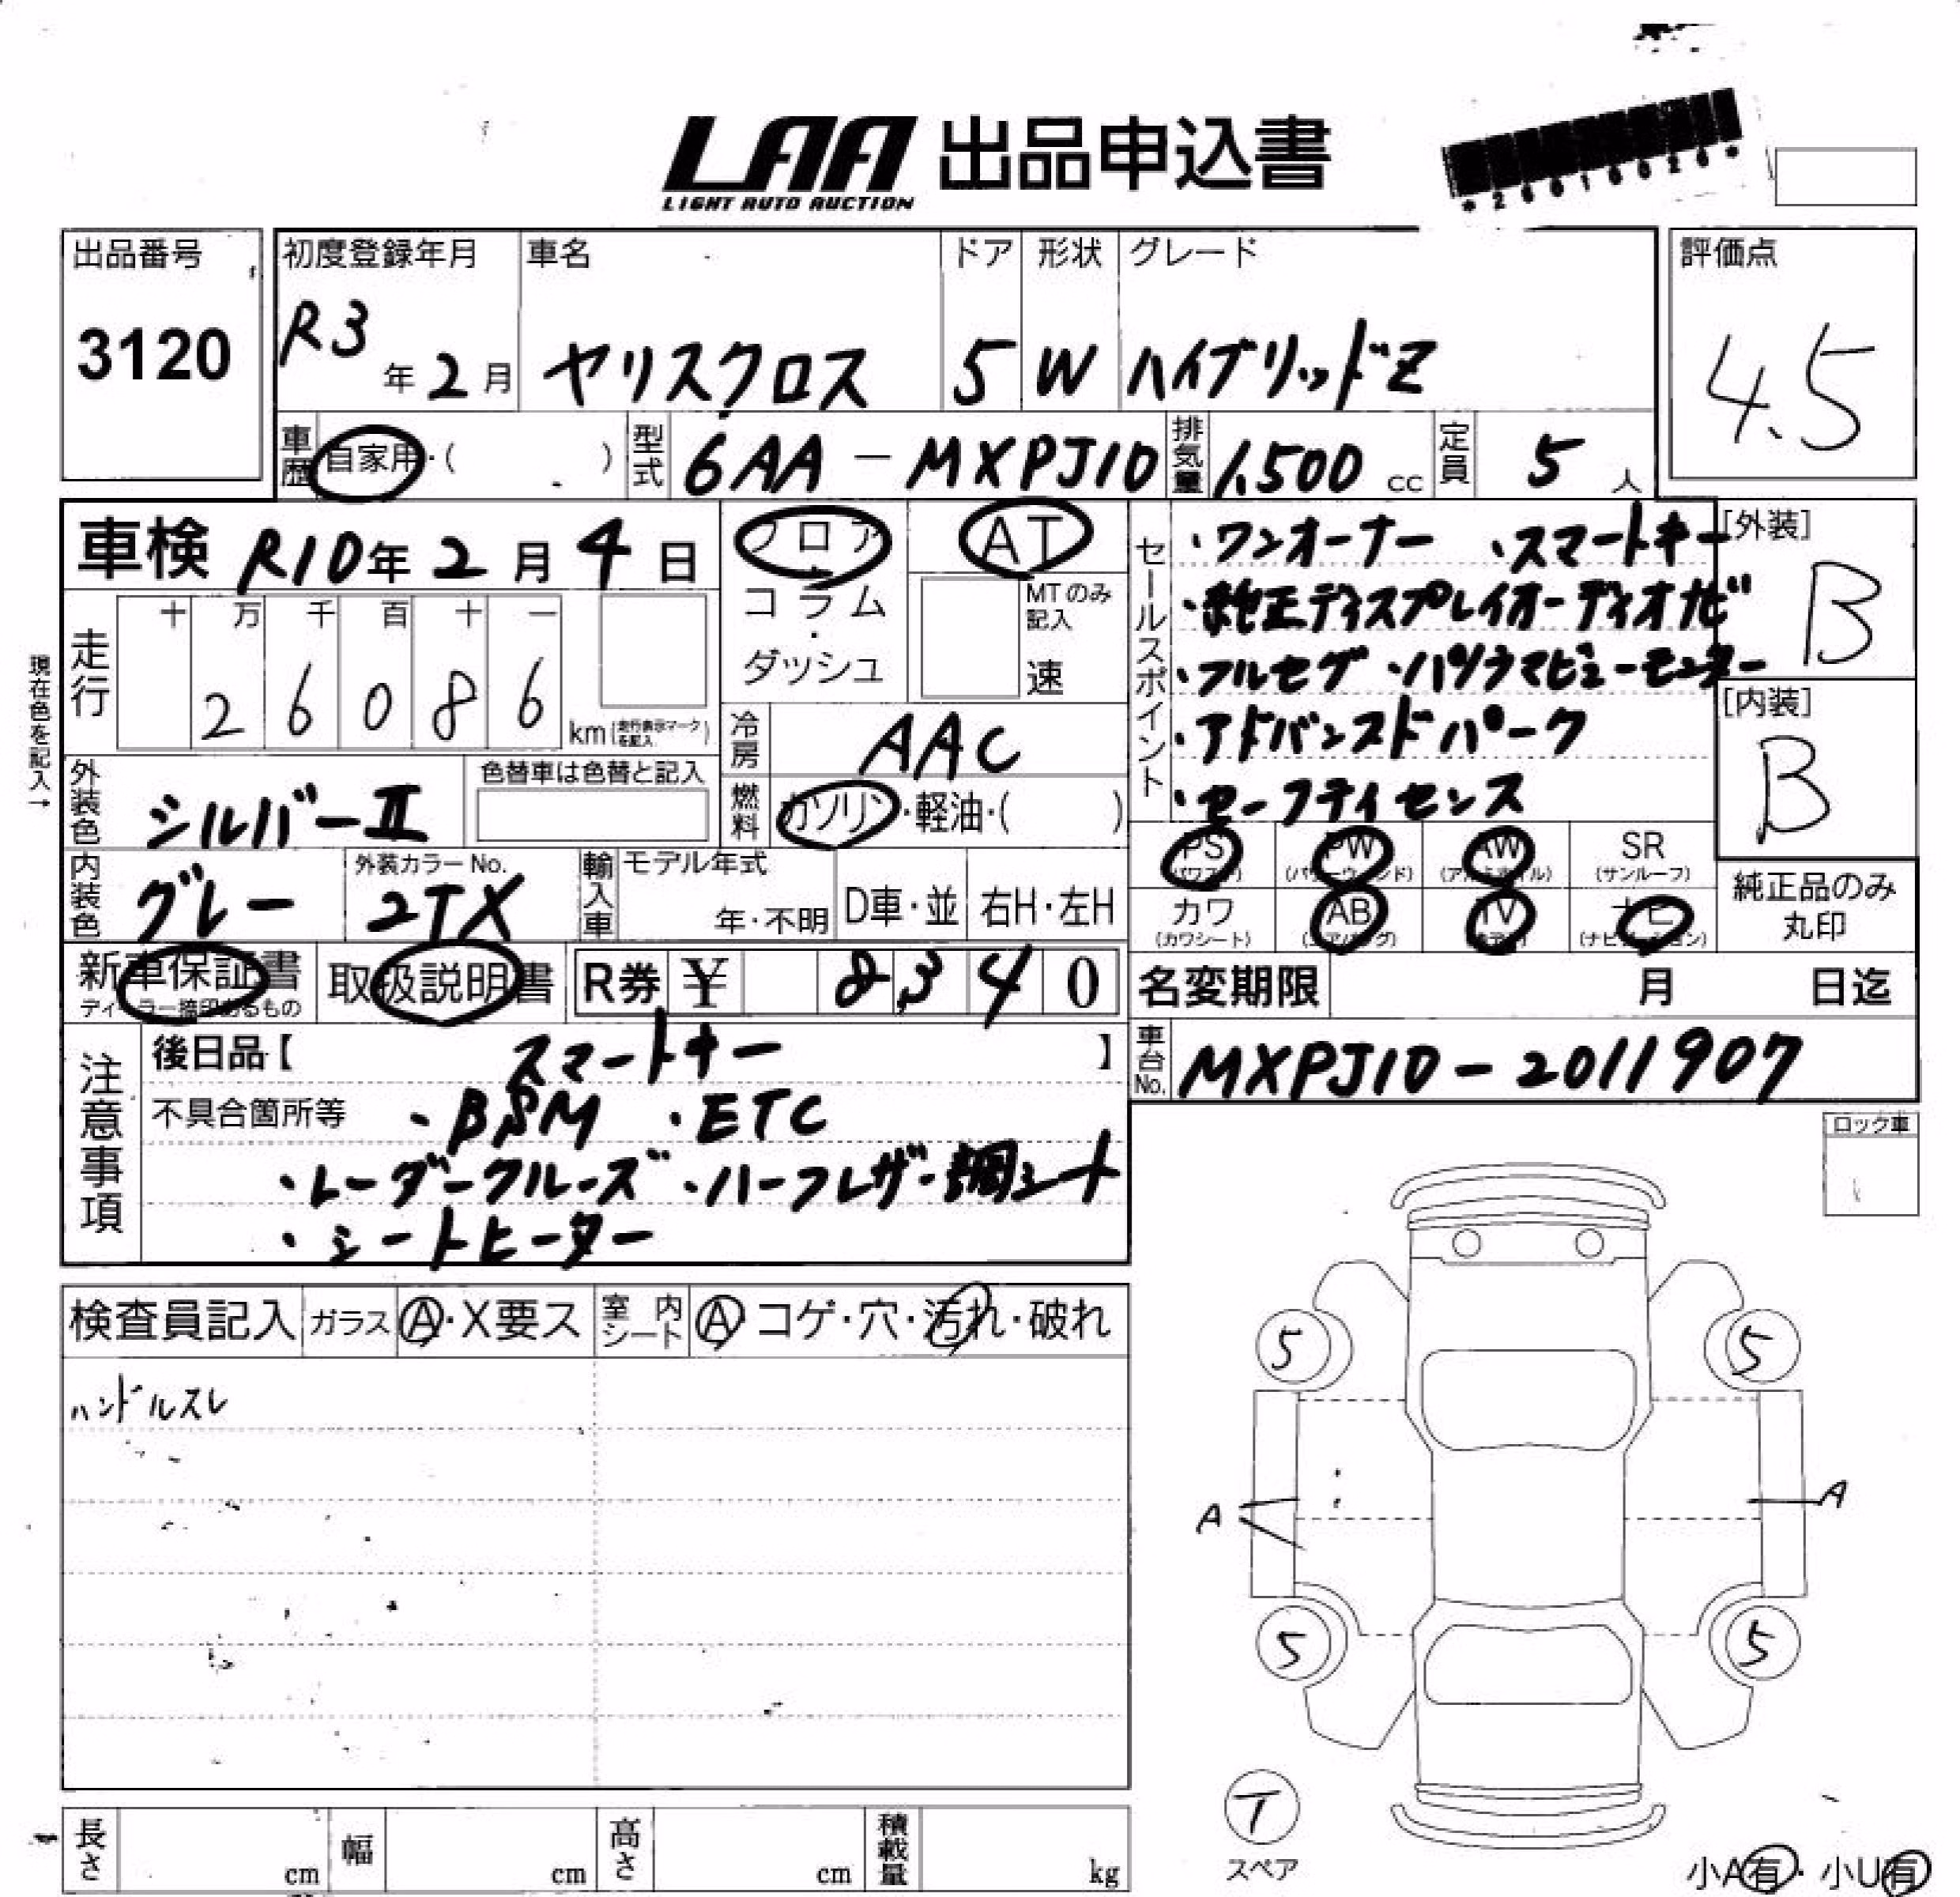 LAA 出品申込書
LIGHT AUTO AUCTION
出品番号
3120
初度登録年月
R3年2月
車名
ヤリスクロス
ドア
5
形状
W
グレード
ハイブリッドZ
評価点
4.5
車歴
自家用・( )
型式
6AA-MXPJ10
排気量
1,500cc
定員
5人
車検 R10年2月4日
フロア・コラム・ダッシュ
AT
MTのみ記入
速
セールスポイント
・ワンオーナー ・スマートキー
・純正ディスプレイオーディオナビ
・フルセグ ・パノラマビューモニター
・アドバンスドパーク
・セーフティセンス
[外装]
B
[内装]
B
現在色を記入→
走行
十 万 千 百 十 一
2 6 0 8 6
km(走行表示マークを記入)
冷房
AAC
外装色
シルバーII
色替車は色替と記入
燃料
ガソリン・軽油・( )
PS
(パワステ)
PW
(パワーウィンド)
AW
(アルミホイル)
SR
(サンルーフ)
内装色
グレー
外装カラーNo.
2TX
輸入車
モデル年式
年・不明
D車・並
右H・左H
カワ
(カワシート)
AB
(エアバッグ)
TV
ナビ
(ナビゲーション)
純正品のみ
丸印
新車保証書
ディーラー捺印あるもの
取扱説明書
R券 ¥ 8,340
名変期限 月 日迄
注意事項
後日品【 スマートキー 】
車台No.
MXPJ10-2011907
不具合箇所等 ・BSM ・ETC
・レーダークルーズ ・ハーフレザー調シート
・シートヒーター
ロック車
検査員記入
ガラス
A・X要ス
室内シート
A コゲ・穴・汚れ・破れ
ハンドルスレ
5 5
A A
5 5
T
スペア
長さ cm
幅 cm
高さ cm
積載量 kg
小A有・小U有